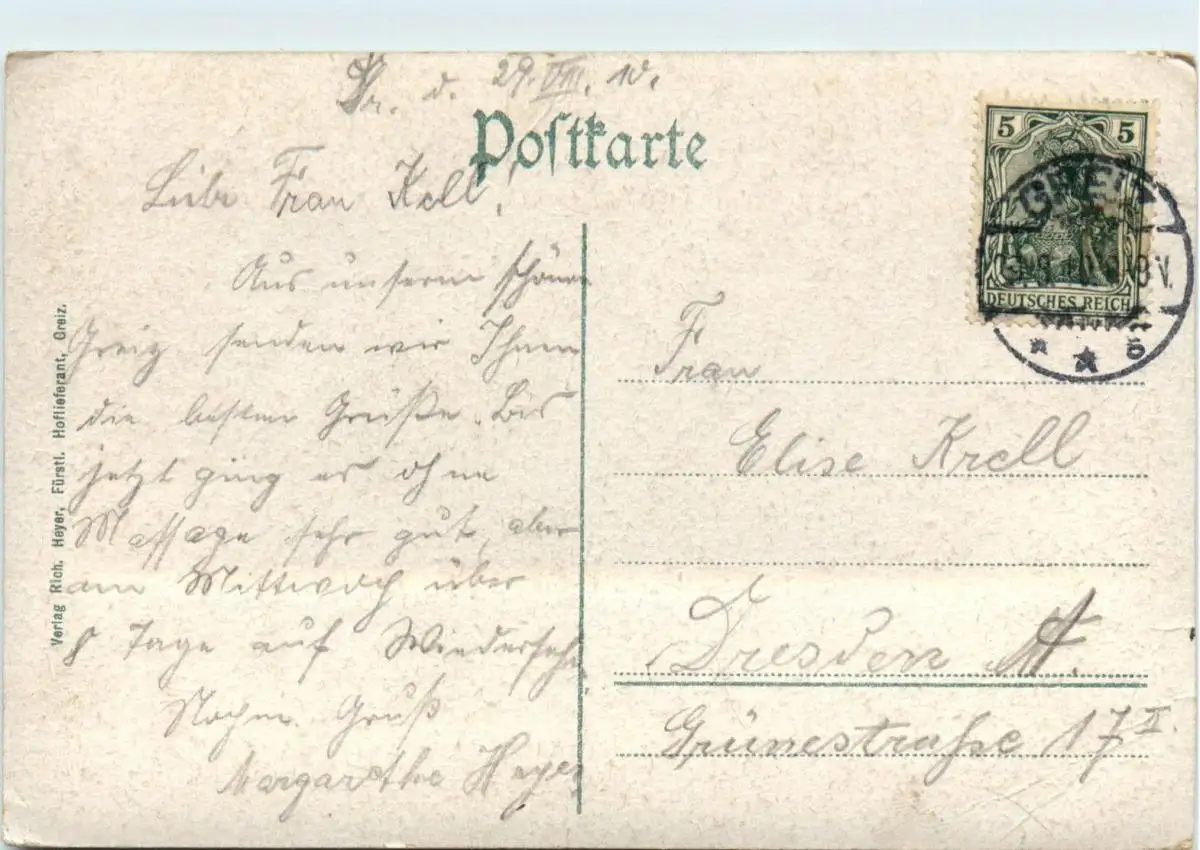 Gr. d. 29. VIII. 10.
Postkarte
Liebe Frau Krell,
Aus unserm schönen
Greiz senden wir Ihnen
die besten Grüße. Bis
jetzt ging es ohne
Massage sehr gut, aber
am Mittwoch über
8 Tage auf Wiedersehn
Nochm. Gruß
Margarethe Heyer
Verlag Rich. Heyer, Fürstl. Hoflieferant, Greiz.
5 5
DEUTSCHES REICH
GREIZ
8-9V.
Frau
Elise Krell
Dresden A.
Grünestraße 17 II.